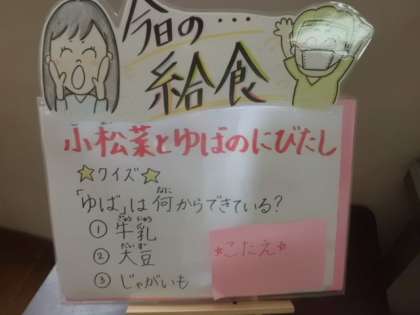 今日の…
給食
小松菜とゆばのにびたし
☆クイズ☆
なに
「ゆば」は何からできている?
ぎゅうにゅう
① 牛乳
だいず
② 大豆
③ じゃがいも
*こたえ*